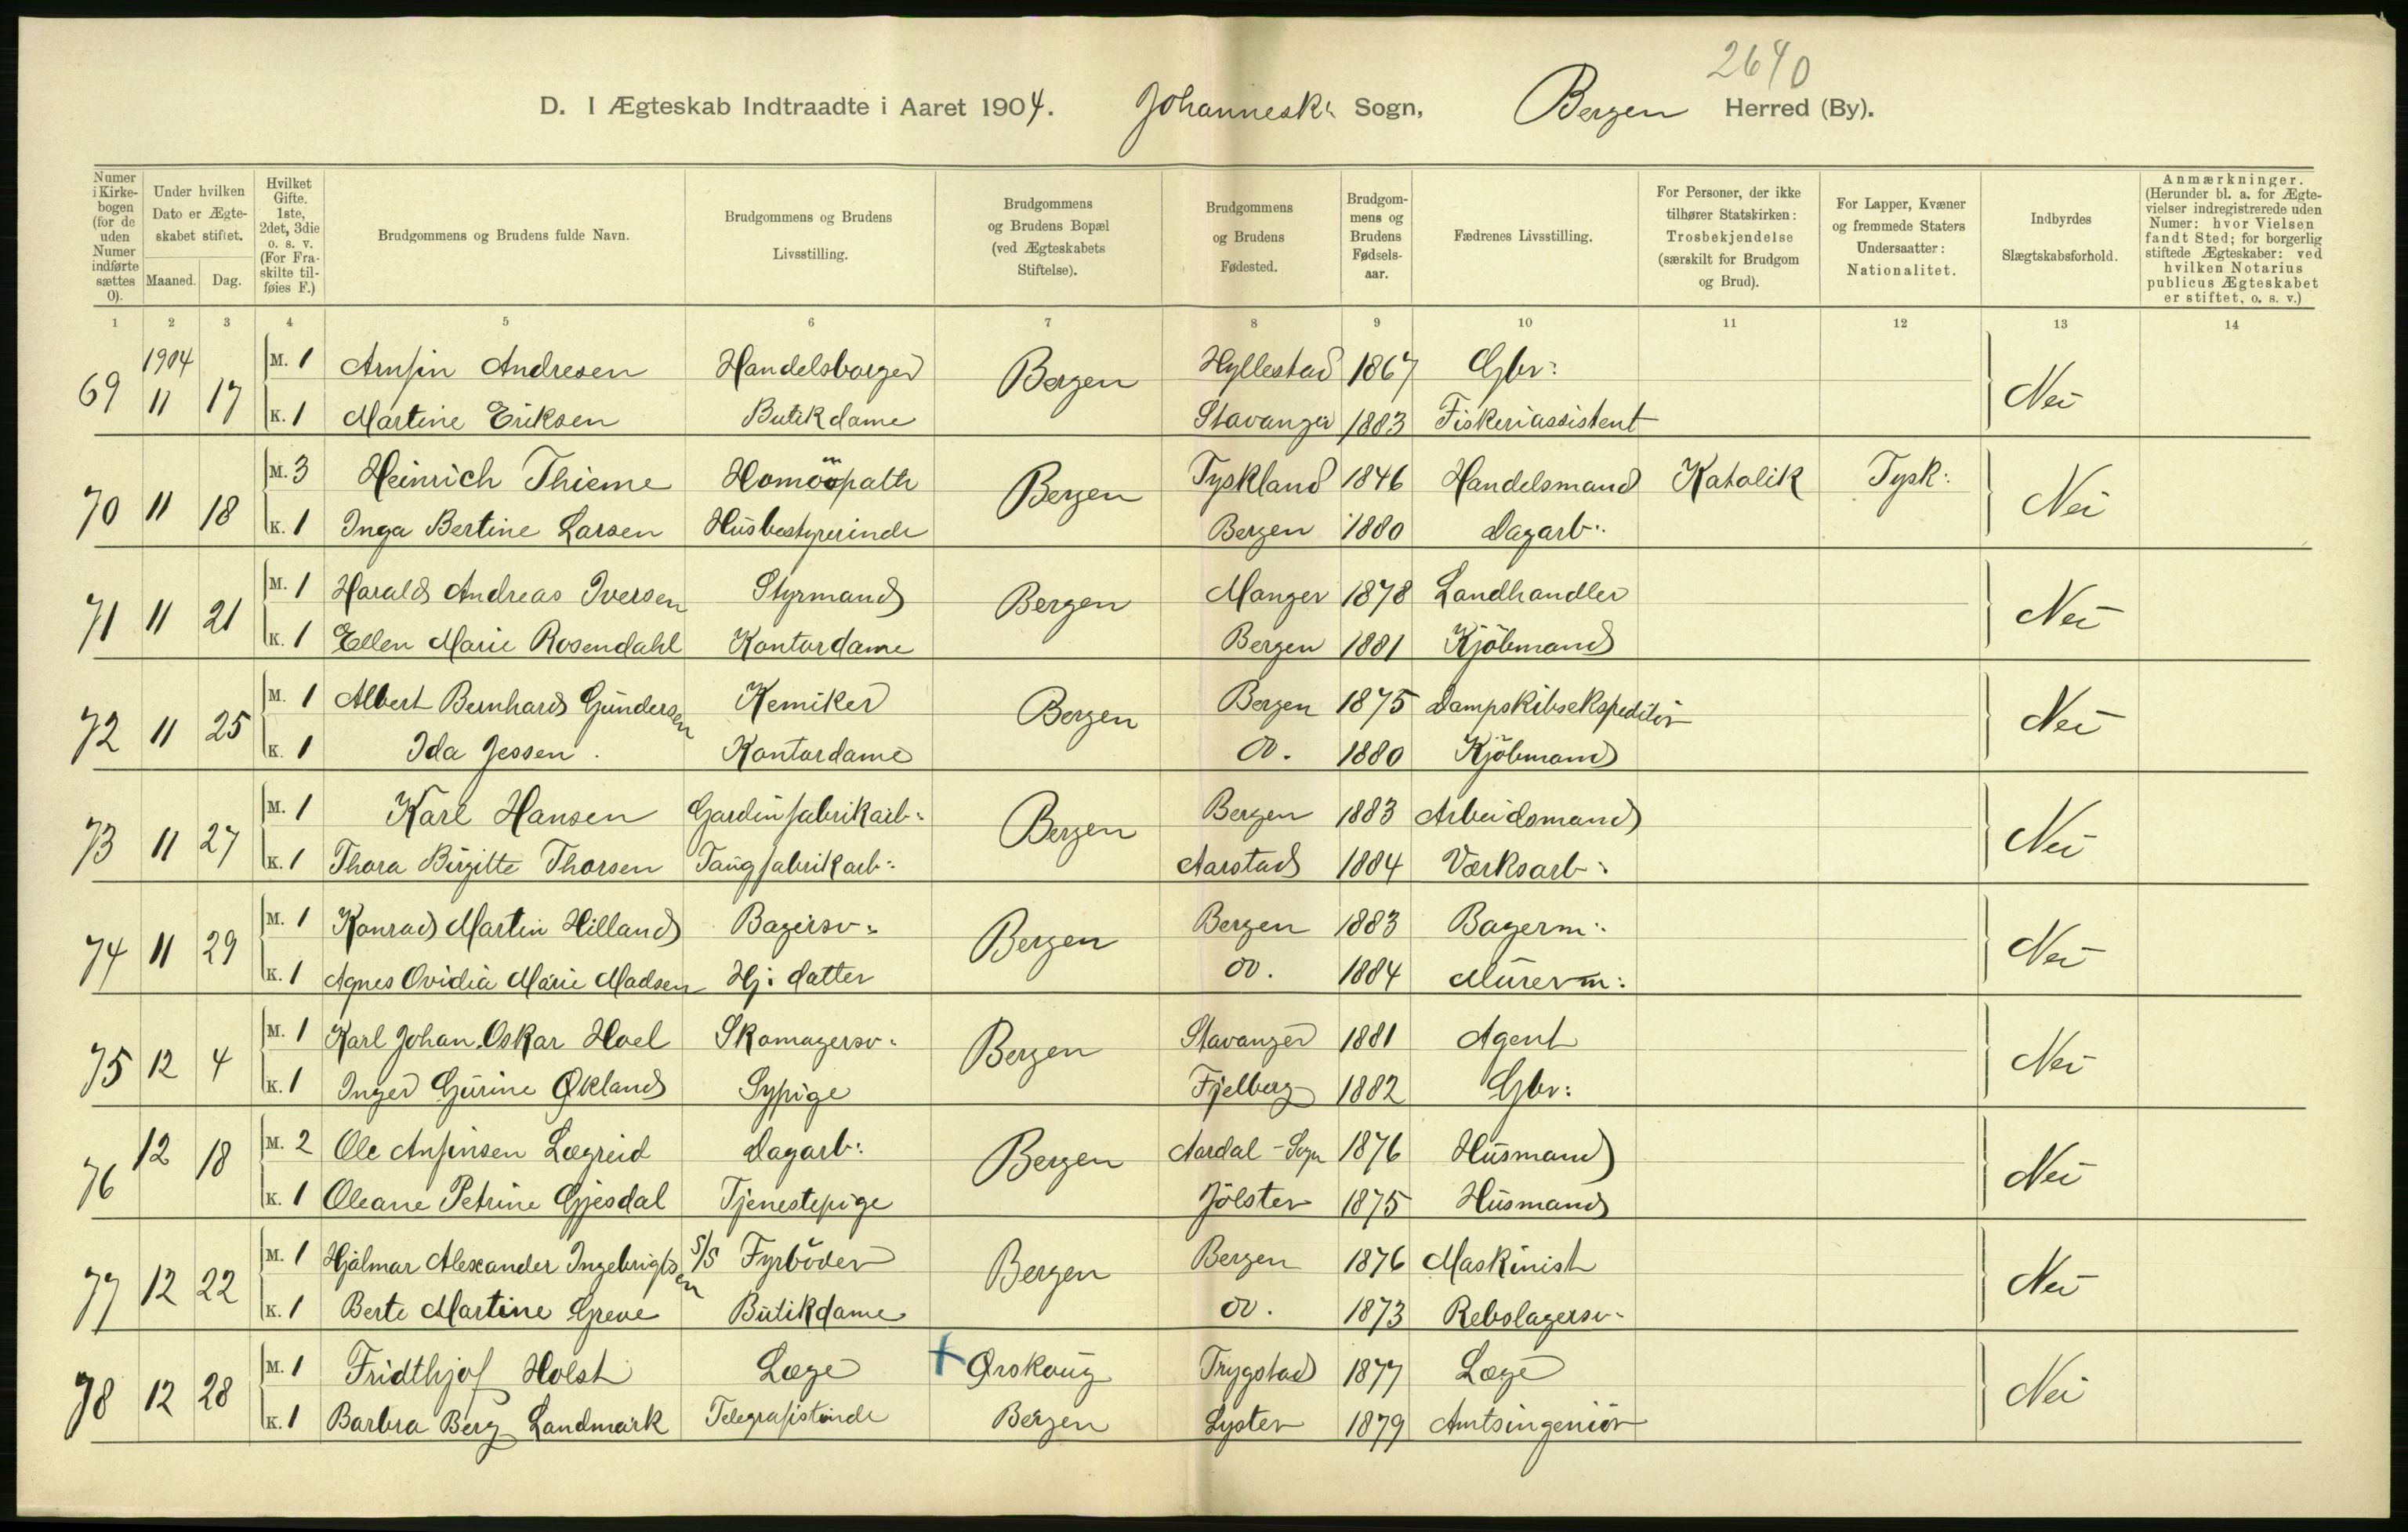 2640
D. I Ægteskab Indtraadte i Aaret 1904. Johannesk: Sogn, Bergen Herred (By).
Numer i Kirkebogen (for de uden Numer indførte sættes 0).
Under hvilken Dato er Ægteskabet stiftet. Maaned. Dag.
Hvilket Gifte. 1ste, 2det, 3die o. s. v. (For Fraskilte tilføies F.)
Brudgommens og Brudens fulde Navn.
Brudgommens og Brudens Livsstilling.
Brudgommens og Brudens Bopæl (ved Ægteskabets Stiftelse).
Brudgommens og Brudens Fødested.
Brudgommens og Brudens Fødselsaar.
Fædrenes Livsstilling.
For Personer, der ikke tilhører Statskirken: Trosbekjendelse (særskilt for Brudgom og Brud).
For Lapper, Kvæner og fremmede Staters Undersaatter: Nationalitet.
Indbyrdes Slægtskabsforhold.
Anmærkninger. (Herunder bl. a. for Ægtevielser indregistrerede uden Numer: hvor Vielsen fandt Sted; for borgerlig stiftede Ægteskaber: ved hvilken Notarius publicus Ægteskabet er stiftet, o. s. v.)
1 2 3 4 5 6 7 8 9 10 11 12 13 14
1904
69 11 17 M. 1 Arnfin Andresen Handelsborger Bergen Hyllestad 1867 Gbr: Nei
K. 1 Martine Eriksen Butikdame Stavanger 1883 Fiskeriassistent
70 11 18 M. 3 Heinrich Thieme Homöopath Bergen Tyskland 1846 Handelsmand Katolik Tysk: Nei
K. 1 Inga Bertine Larsen Husbestyrerinde Bergen 1880 Dagarb:
71 11 21 M. 1 Harald Andreas Iversen Styrmand Bergen Manger 1878 Landhandler Nei
K. 1 Ellen Marie Rosendahl Kontordame Bergen 1881 Kjöbmand
72 11 25 M. 1 Albert Bernhard Gundersen Kemiker Bergen Bergen 1875 Dampskibsekspeditör Nei
K. 1 Ida Jessen. Kontordame do. 1880 Kjöbmand
73 11 27 M. 1 Karl Hansen Gardinfabrikarb: Bergen Bergen 1883 Arbeidsmand Nei
K. 1 Thora Birgitte Thorsen Taugfabrikarb: Aarstad 1884 Værksarb:
74 11 29 M. 1 Konrad Martin Hilland Bagersv: Bergen Bergen 1883 Bagerm: Nei
K. 1 Agnes Ovidia Marie Madsen Hj: datter do. 1884 Murerm:
75 12 4 M. 1 Karl Johan Oskar Hoel Skomagersv: Bergen Stavanger 1881 Agent Nei
K. 1 Inger Gurine Økland Sypige Fjelberg 1882 Gbr:
76 12 18 M. 2 Ole Anfinsen Lægreid Dagarb: Bergen Aardal - Sogn 1876 Husmand Nei
K. 1 Oleane Petrine Gjesdal Tjenestepige Jölster 1875 Husmand
77 12 22 M. 1 Hjalmar Alexander Ingebrigtsen S/S Fyrböder Bergen Bergen 1876 Maskinist Nei
K. 1 Berte Martine Greve Butikdame do. 1873 Rebslagersv:
78 12 28 M. 1 Fridthjof Holst Læge + Ørskoug Trygstad 1877 Læge Nei
K. 1 Barbra Berg Landmark Telegrafistinde Bergen Lyster 1879 Amtsingeniör